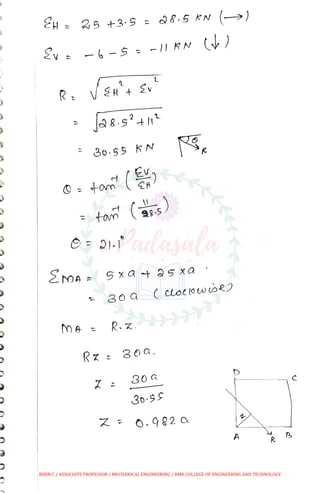 ΣH = 25 + 3.5 = 28.5 KN (→)
Σv = -6 - 5 = -11 KN (↓)
R = √ΣH² + Σv²
= √28.5² + 11²
= 30.55 KN
θ
R
θ = tan⁻¹ (ΣV/ΣH)
= tan⁻¹ (11/28.5)
θ = 21.1°
Padasala
ΣMA = 5 x a + 25 x a
= 30 a (clockwise)
MA = R.Z.
RZ = 30a.
Z = 30a / 30.55
Z = 0.982 a
D C
Z
A R B
BIBIN.C / ASSOCIATE PROFESSOR / MECHANICAL ENGINEERING / RMK COLLEGE OF ENGINEERING AND TECHNOLOGY